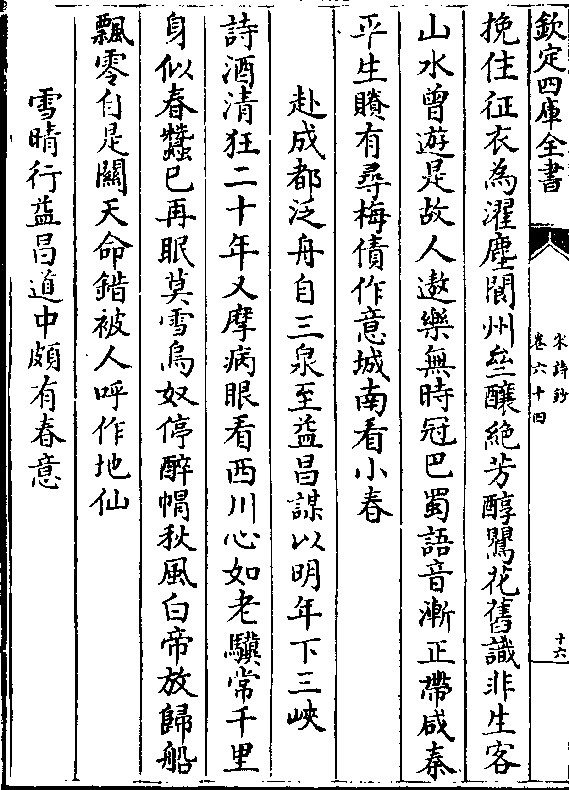 欽定四庫全書
宋詩鈔
卷六十四
十六
挽住征衣為濯塵閬州壘釀絶芳醇鸎花舊識非生客
山水曾遊是故人遨樂無時冠巴蜀語音漸正帶咸秦
平生賸有尋梅債作意城南看小春
赴成都泛舟自三泉至益昌謀以明年下三峽
詩酒清狂二十年又摩病眼看西川心如老驥常千里
身似春蠶已再眠莫雪烏奴停醉帽秋風白帝放歸船
飄零自是闗天命錯被人呼作地仙
雪晴行益昌道中頗有春意